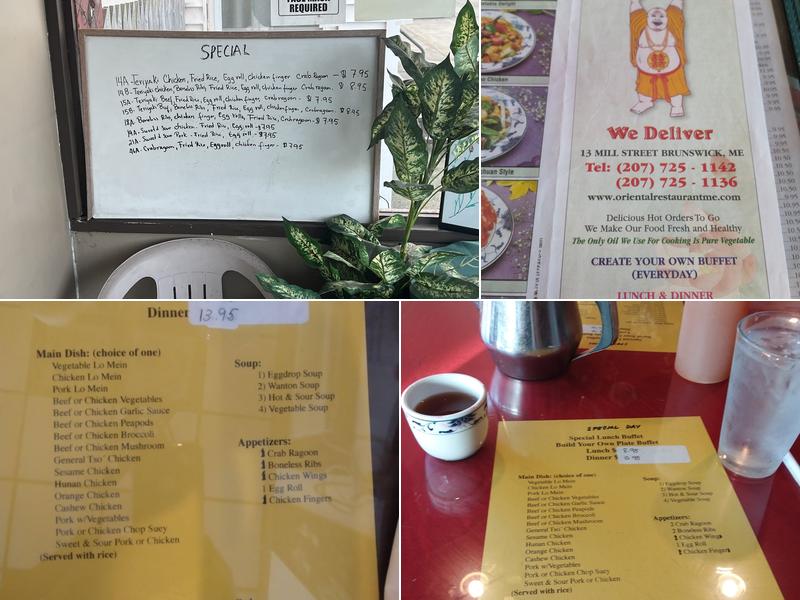 FACE MASK
REQUIRED
SPECIAL
14A Teriyaki Chicken, Fried Rice, Egg roll, chicken finger Crab Ragoon - $ 7.95
14B- Teriyaki chicken, Boneless Ribs, Fried Rice, Egg roll, chicken finger Crab Ragoon. - $ 8.95
15A Teriyaki Beef, Fried Rice, Egg roll, chicken finger, Crab ragoon - $ 7.95
15B- Teriyaki Beef, Boneless Ribs, Fried Rice, Egg roll, chicken finger, Crab ragoon - $ 8.95
Boneless Ribs, chicken finger, Egg Rolls, Fried Rice, Crab ragoon - $ 7.95
Sweet & Sour chicken, Fried Rice, Egg roll - $7.95
21A- Sweet & Sour Pork - Fried Rice, Egg roll - $7.95
Crab ragoon, Fried Rice, Egg roll, chicken finger - $7.95
We Deliver
13 MILL STREET BRUNSWICK, ME
Tel: (207) 725 - 1142
(207) 725 - 1136
www.orientalrestaurantme.com
Delicious Hot Orders To Go
We Make Our Food Fresh and Healthy
The Only Oil We Use For Cooking Is Pure Vegetable
CREATE YOUR OWN BUFFET
(EVERYDAY)
LUNCH & DINNER
Dinner 13.95
Main Dish: (choice of one)
Vegetable Lo Mein
Chicken Lo Mein
Pork Lo Mein
Beef or Chicken Vegetables
Beef or Chicken Garlic Sauce
Beef or Chicken Peapods
Beef or Chicken Broccoli
Beef or Chicken Mushroom
General Tso' Chicken
Sesame Chicken
Hunan Chicken
Orange Chicken
Cashew Chicken
Pork w/Vegetables
Pork or Chicken Chop Suey
Sweet & Sour Pork or Chicken
(Served with rice)
Soup:
1) Eggdrop Soup
2) Wanton Soup
3) Hot & Sour Soup
4) Vegetable Soup
Appetizers:
1 Crab Ragoon
1 Boneless Ribs
1 Chicken Wings
1 Egg Roll
1 Chicken Fingers
SPECIAL DAY
Special Lunch Buffet
Build Your Own Plate Buffet
Lunch $ 8.95
Dinner $ 10.95
Main Dish: (choice of one)
Vegetable Lo Mein
Chicken Lo Mein
Pork Lo Mein
Beef or Chicken Vegetables
Beef or Chicken Garlic Sauce
Beef or Chicken Peapods
Beef or Chicken Broccoli
Beef or Chicken Mushroom
General Tso' Chicken
Sesame Chicken
Hunan Chicken
Orange Chicken
Cashew Chicken
Pork w/Vegetables
Pork or Chicken Chop Suey
Sweet & Sour Pork or Chicken
(Served with rice)
Soup:
1) Eggdrop Soup
2) Wanton Soup
3) Hot & Sour Soup
4) Vegetable Soup
Appetizers:
2 Crab Ragoon
2 Boneless Ribs
Chicken Wings
1 Egg Roll
Chicken Fingers